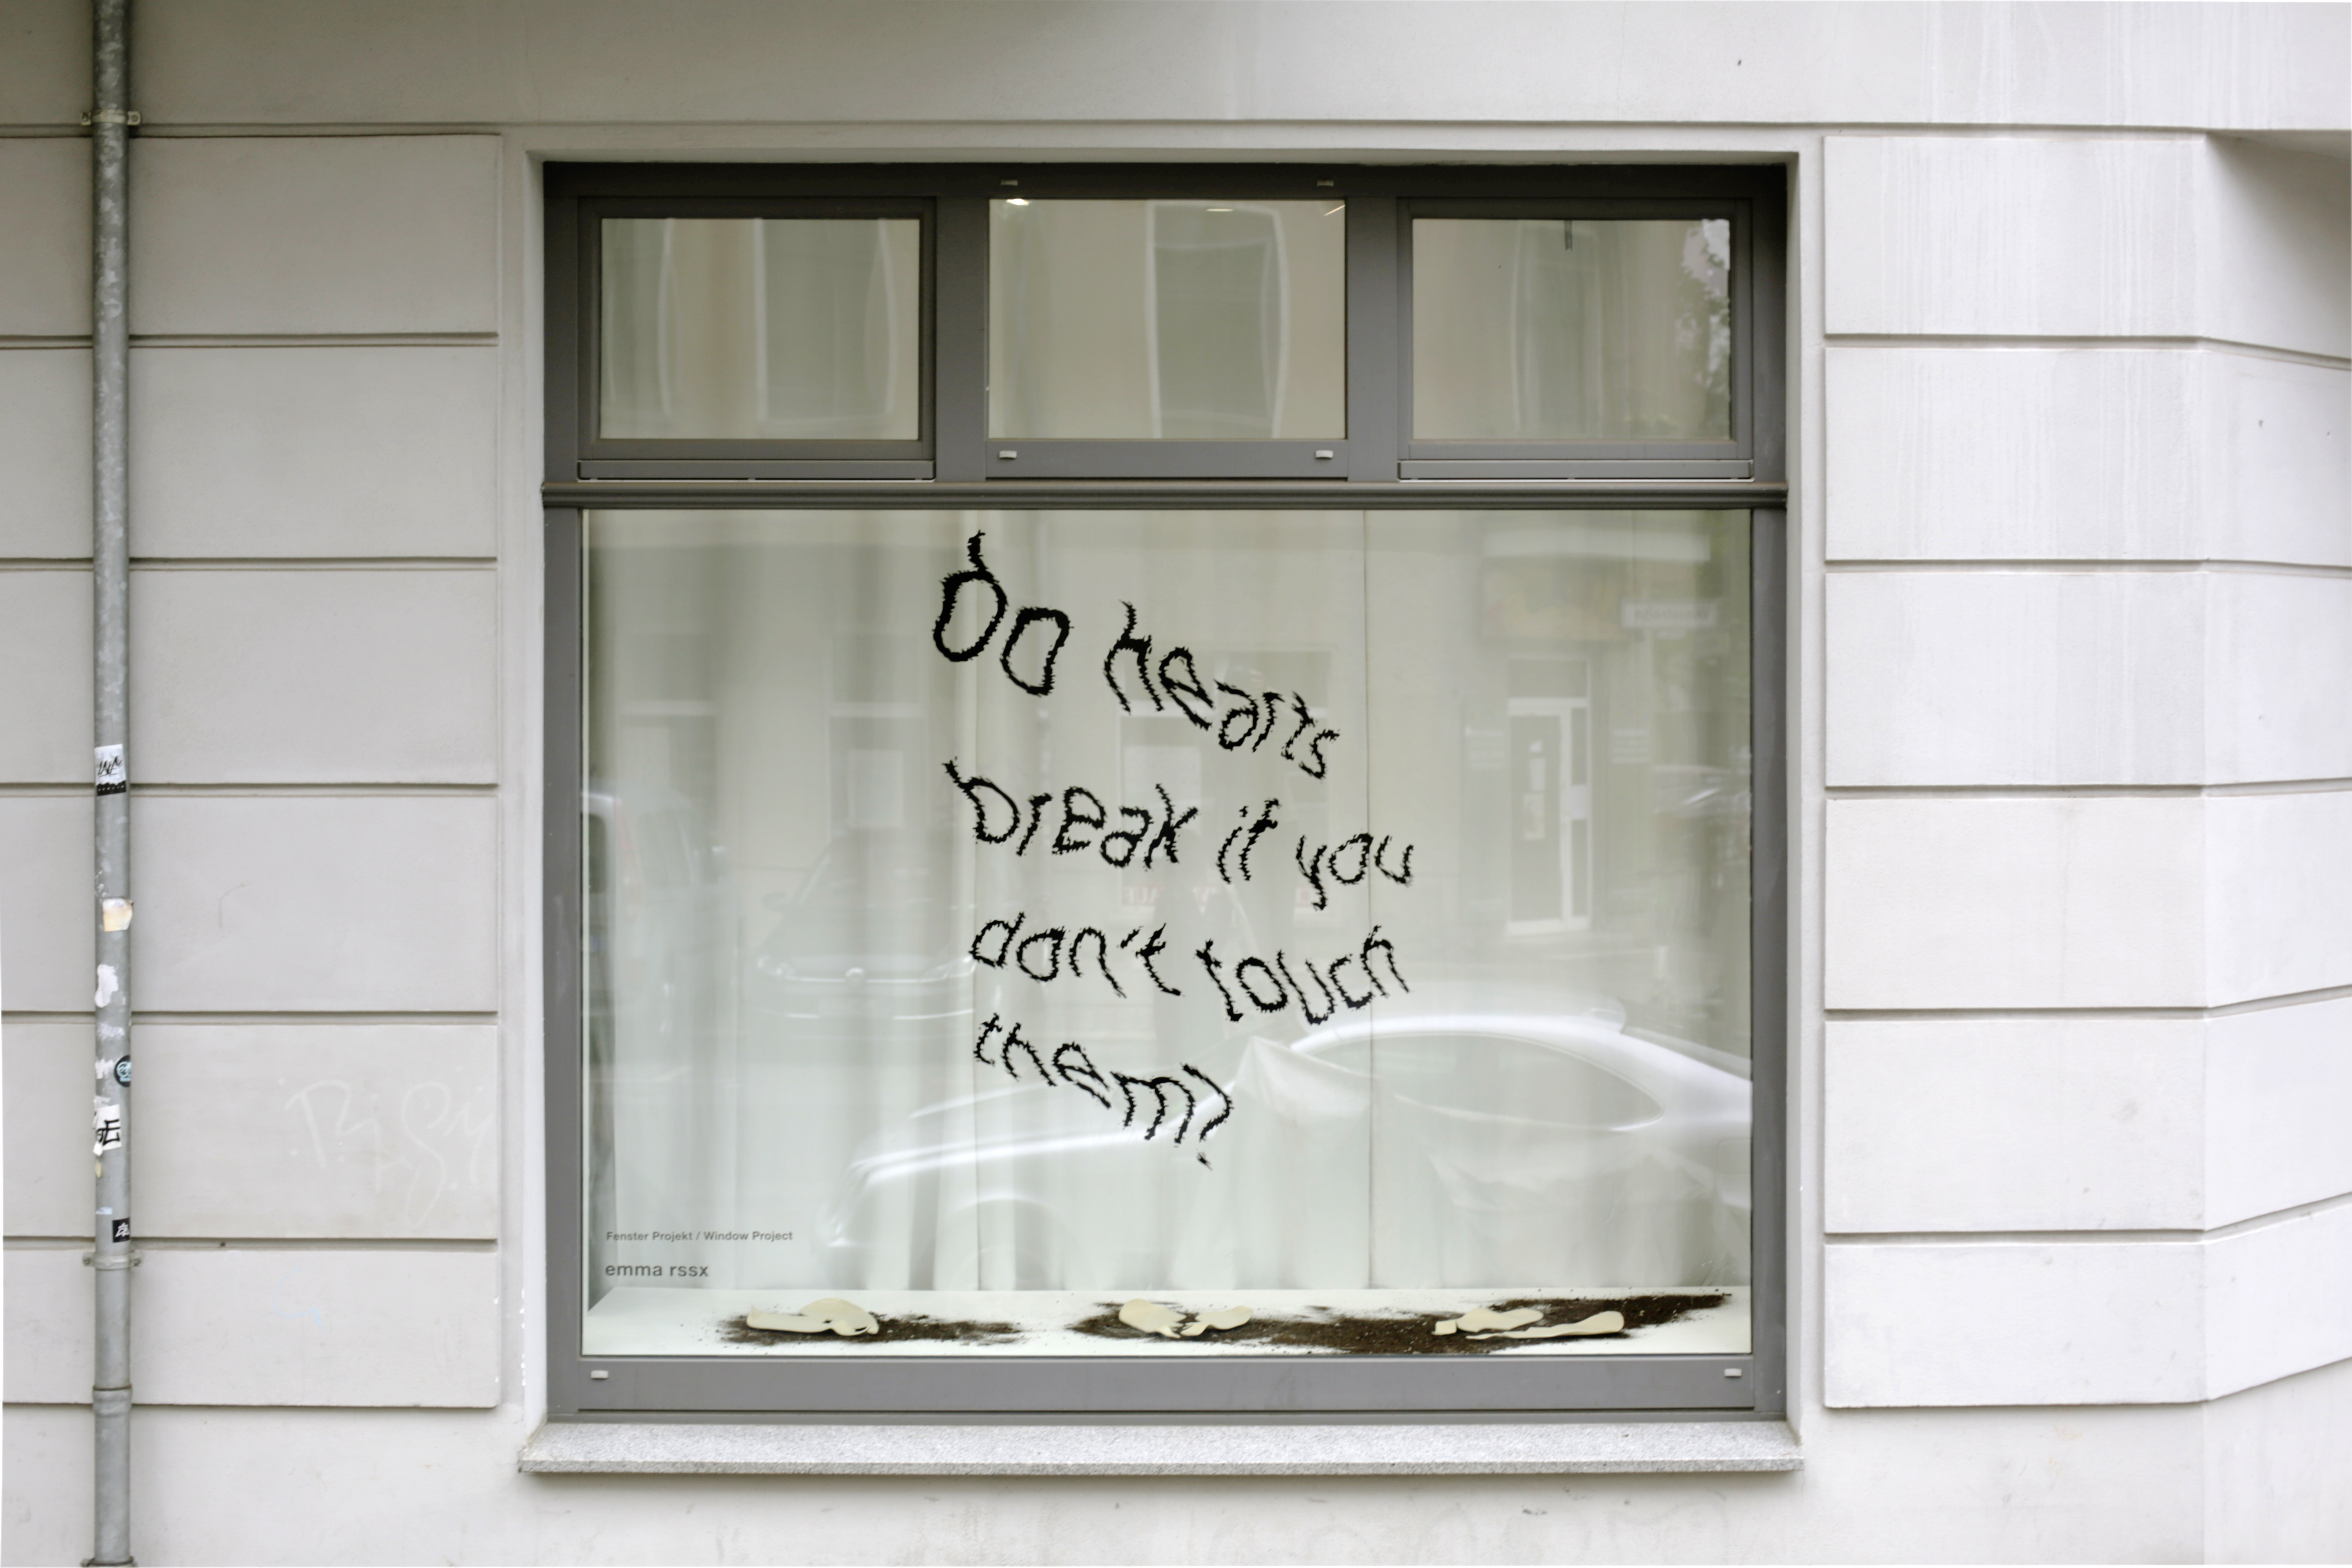 Do hearts
break if you
don't touch
them?
Fenster Projekt / Window Project
emma rssx